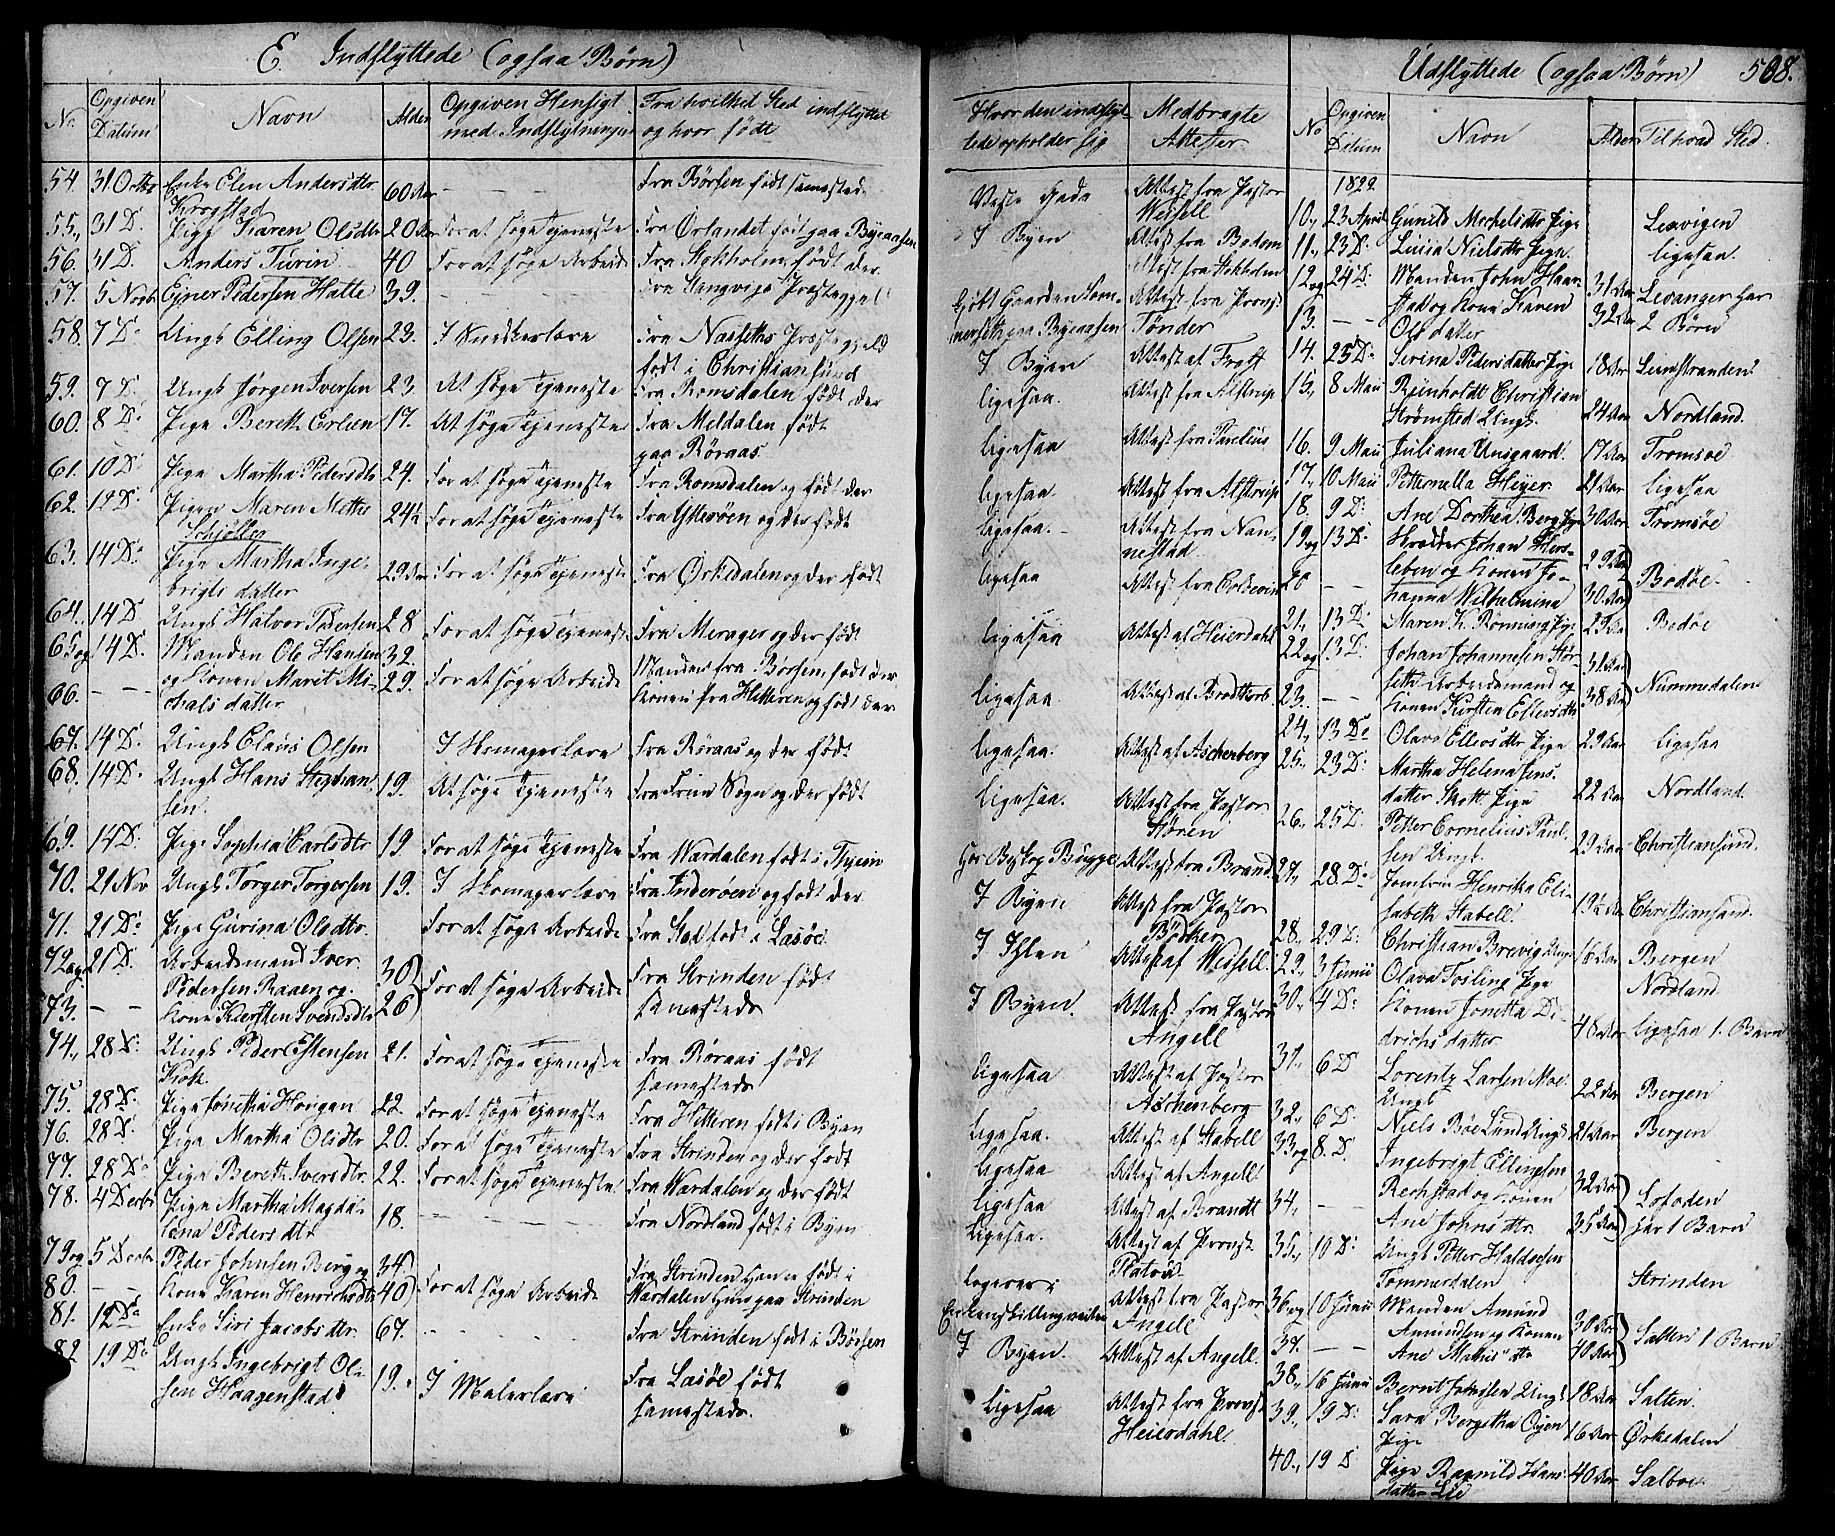 E. Indflyttede (ogsaa Børn)
No
Opgiven Datum
Navn
Alder
Opgiven Hensigt med Indflytningen
Fra hvilket Sted indflyttet og hvor født
54. 31 Octbr Enke Elen Andersdtr 60 Aar — — Fra Børsen født samesteds
Krogstad
55., 31 D. Pige Karen Olsdtr 20 Aar For at søge Tjeneste Fra Ørlandet født paa Byeaasen
56. 31 D. Anders Turin 40 For at søge Arbeide Fra Stokholm født der
57. 5 Novb. Ejner Pedersen Hatte 39. — — Fra Stangvigs Præstegjel
58. 7 D. Ungk Elling Olsen 23. I Snedkerlære Fra Næssets Præstegjeld
født i Christiansund
59. 7 D. Ungk Jørgen Iversen 23 At søge Tjeneste Fra Romsdalen født der
60. 8 D. Pige Berett Erlsen 17. At søge Tjeneste Fra Meldalen født
paa Røraas
61. 10 D. Pige Martha Pedersdtr 24. For at søge Tjeneste Fra Romsdalen og født der
62. 12 D. Pigen Maren Mette 24½ For at søge Tjeneste Fra Ytterøen og der født
Schjølles
63. 14 D. Pige Martha Inge- 29 Aar For at søge Tjeneste Fra Ørkedalen og der født
brigts datter
64. 14 D. Ungk Halvor Pedersen 28 For at søge Tjeneste Fra Merager og der født
65 og 14 D. Manden Ole Hansen 32. For at søge Arbeide Manden fra Børsen født der
66. — — og Konen Marit Mi- 29. Konen fra Hitteren og født der
chals datter
67. 14 D. Ungk Claus Olsen I Skomagerlære Fra Røraas og der født
68. 14 D. Ungk Hans Stephan- 19. At søge Tjeneste Fra Frue Sogn og der født
sen.
69. 14 D. Pige Sophia Carlsdtr 19 For at søge Tjeneste Fra Wærdalen født i Thyin
70. 21 Nov Ungk Torger Torgersen 19. I Skomagerlære Fra Inderøen og født der
71. 21 D. Pige Gurina Olsdtr. For at søge Arbeide Fra Stod født i Lasøe
72 og 21 D. Arbeidsmand Iver 30 For at søge Arbeide Fra Strinden
Pedersen Raaen og
73. — — Kone Kiersten Svendsdtr 26 samesteds
74., 28 D. Ungk Peder Estensen 21. For at søge Tjeneste Fra Røraas født
Kok samesteds
75. 28 D. Pige Jonetta Hougan 22 For at søge Tjeneste Fra Hitteren født i Byen
76. 28 D. Pige Martha Olsdtr 20. For at søge Tjeneste Fra Strinden og der født
77. 28 D. Pige Berett Iversdtr. 22. For at søge Tjeneste Fra Wardalen og der født
78. 4 Decbr Pige Martha Magda- 18. — — — Fra Nordland født i Byen
lena Pedersdtr
79 og 5 Decbr Peder Johnsen Berg og 34 For at søge Arbeide Fra Strinden Han er født i
80. — — Kone Karen Henrichsdtr 40 Wardalen Hun paa Strinden
81. 12 D. Enke Siri Jacobsdtr. 67. — — — Fra Strinden født i Børsen
82 19 D. Ungk Ingebrigt Ol- 19. I Malerlære Fra Lasøe født
sen Haagenstad samesteds.
Hvor den indflyt-
tede opholder sig
Medbragte
Attester
Veste Gade Attest fra Pastor Weisell
I Byen Attest fra Bodom
Attest fra Stokholm
Gjest Gaarden Sem- Attest fra Provst
nersetts paa Byeaasen Tønder
I Byen Attest af Frost
ligesaa. Attest fra Alstrup
ligesaa Attest fra Parelius
ligesaa. Attest fra Alstrup
ligesaa. — Attest fra Nan-
nestad
ligesaa Attest fra Coldevin
ligesaa Attest af Heierdahl
ligesaa. Attest af Brodtkorb
ligesaa. Attest af Aschenberg
ligesaa. Attest fra Pastor
Støren
Hos By fog Bugge Attest fra Brand
I Byen Attest fra Pastor
Bødtker
I Ihlen Attest af Weisell
I Byen. Attest fra Pastor
Angell
ligesaa Attest af Pastor
Aschenberg
ligesaa. Attest af Stabell
ligesaa Attest af Angell
ligesaa Attest af Brandt
ligesaa. Attest af Provst
Flatøe
logerer i Attest fra Pastor
Enkenskillingsveiten Angell
I Byen. Attest af Angell.
ligesaa Attest fra Provst
Heierdahl.
Udflyttede (ogsaa Børn) 508.
No
Opgiven
Datum
Navn
Alder
Til hvad Sted.
1829.
10., 23 April Gunild Mechelsdtr Pige Lexvigen
11., 23 D. Luisa Nielsdtr Pige. ligesaa.
12 og 24 D. Manden John Haar- 31 Aar Levanger har
13. — — stad og Kone Karen 32 Aar 2 Børn
Ols datter
14. 25 D. Serina Pedersdatter Pige 18 Aar Lensstranden
15., 8 Maii Reinholdt Christian
Strømsted Ungk. 24 Aar Nordland.
16. 9 Maii Juliana Unsgaard. 17 Aar Tromsøe
17., 10 Maii Petternella Heyer 21 Aar ligesaa
18. 9 D. Ane Dorthea Berg Pige 30 Aar Tromsøe
19 og 13 D. Skrædder Johan Hers- 29 Aar
leben og Konen Jo- Bodøe.
20 — — hanna Wilhelmina 30 Aar
21, 13 D. Maren K. Rønning Pige 29 Aar Bodøe
22 og 13 D. Johan Johannesen Stør- 31 Aar
seth Arbeidsmand og Nummedalen
23. — — Konen Kirsten Ellevsdtr 38 Aar
24., 13 D. Olava Ellevsdtr Pige 29 Aar ligesaa
25., 23 D. Martha Helena Jens-
datter Skott Pige 22 Aar Nordland.
26., 25 D. Petter Cornelius Paul- 29 Aar Christiansund.
sen Ungk.
27., 28. D. Jomfrue Henrika Eli-
sabeth Stabell. 19½ Aar Christiansand.
28., 29 D. Christian Brevig Ungk 16 Aar Bergen
29., 3 Junii Olava Fosling Pige Nordland
30., 4 D. Konen Jonetta Di-
drichs datter 48 Aar ligesaa 1. Barn
31., 6 D Lorentz Larsen Moe
Ungk 22 Aar Bergen
32., 6 D. Niels Bøe Lund Ungk 21 Aar Bergen
33 og 8. D. Ingebrigt Ellingsen
Rechstad og Konen 32 Aar Lofoden
34., — — Ane Johns dtr. 35 Aar har 1 Barn
35., 10 D. Ungk Petter Haldosen
Tommerdalen Strinden
36 og 10 Junii Manden Amund
Amundsen og Konen 30 Aar Salten 1 Barn.
37. — — Ane Mathis dtr 40 Aar
38., 16 Junii Bernt Johnsen Ungk 18 Aar Salten.
39., 19 D. Sara Bergitha Oyen 16 Aar Ørkedalen
Pige
40., 19 D Pige Ragnild Hans- 40 Aar Salboe
datter Lie